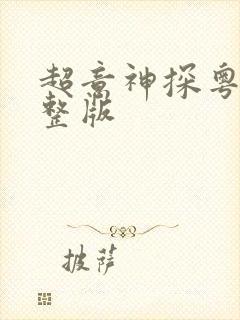 超音神探粤
整版
披萨